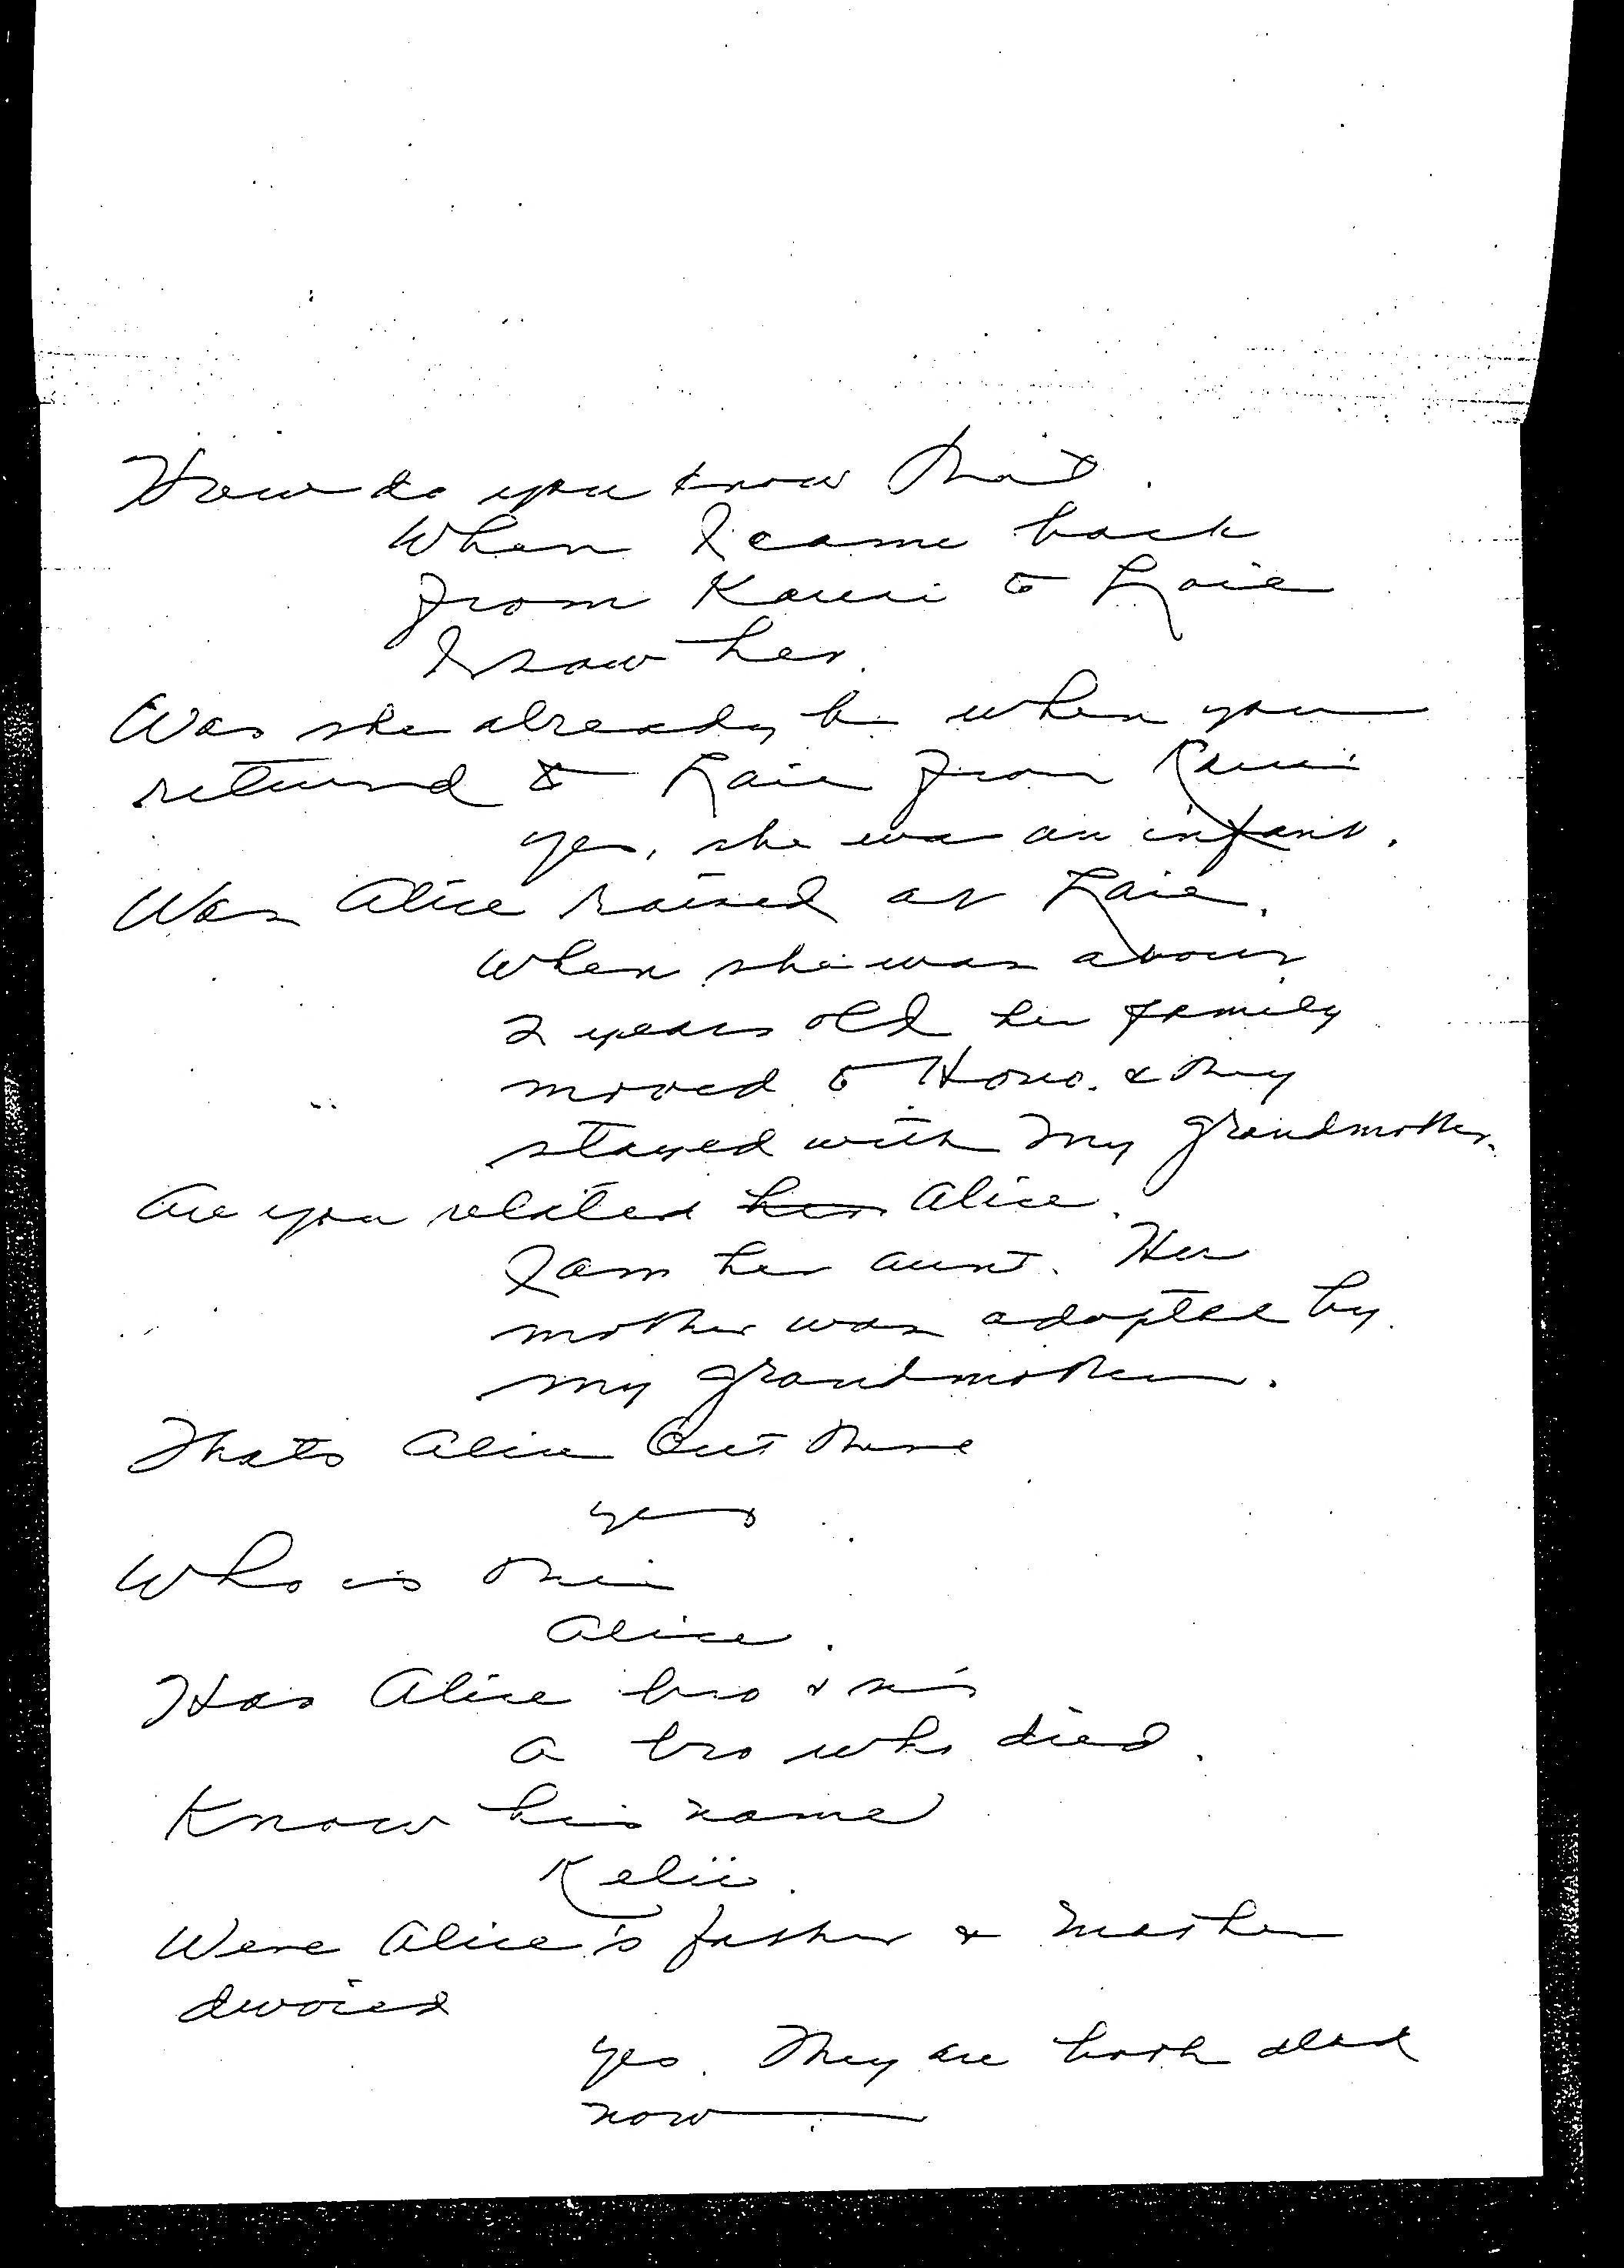 How do you know that.
When I came back
from Kauai to Laie
I saw her.
Was she already b. when you
returned to Laie from Kauai
yes, she was an infant.
Was Alice raised at Laie.
When she was about
2 years old her family
moved to Hono. & they
stayed with my grandmother.
Are you related her Alice.
I am her aunt. Her
mother was adopted by
my grandmother.
Thats Alice out there
yes
Who is
Alice.
Has Alice bro & sis
a bro who died.
Know his name
Kelii.
Were Alice's father & mother
divorced
yes. They are both dead
now